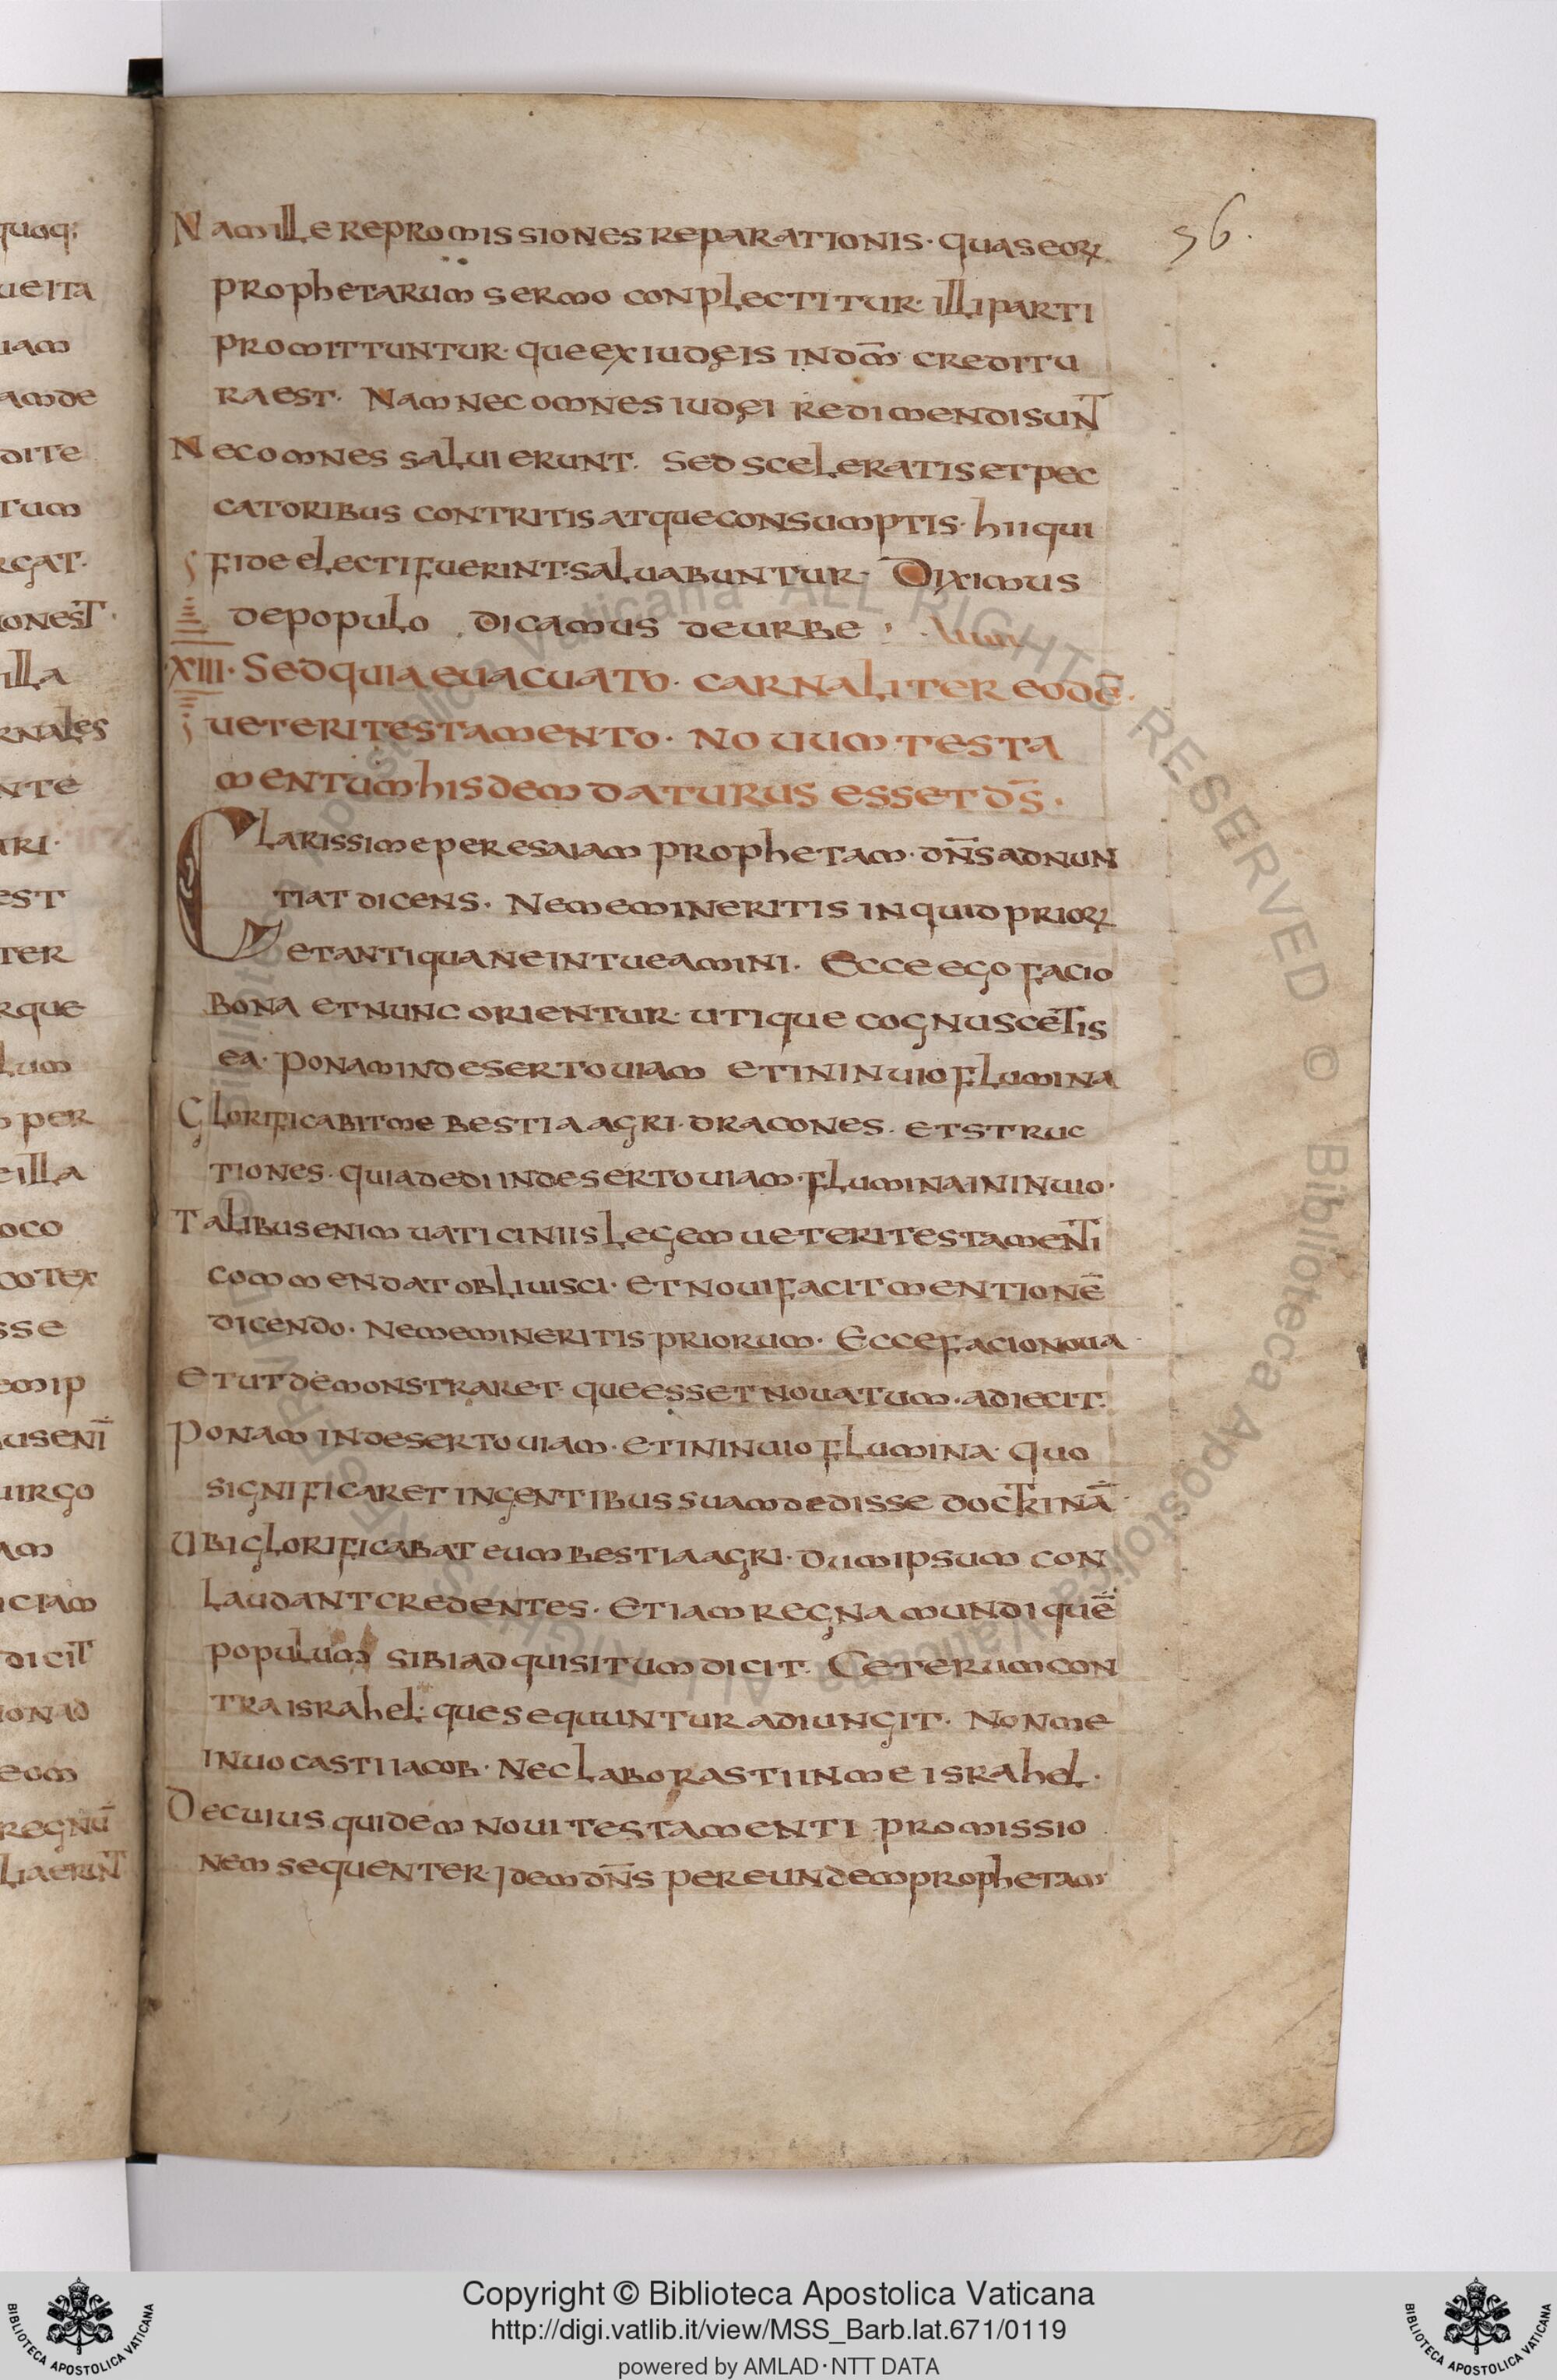 56.
Nam ille repromissiones reparationis· quas eoꝝ
prophetarum sermo conplectitur· illi parti
promittuntur· que ex iudęis in dom̄· creditu
ra est· Nam nec omnes iudęi redimendi sunt
Nec omnes salui erunt· sed sceleratis et pec
catoribus contritis atque consumptis· hii qui
fide electi fuerint· saluabuntur· Diximus
de populo dicamus de urbe
·XIII· Sed quia euacuato· carnaliter eodē·
ueteri testamento· nouum testa
mentum· hisdem daturus esset d̄s·
Clarissime per esaiam prophetam· dn̄s adnun
tiat dicens· Ne memineritis inquid prioꝝ
et antiqua ne intueamini· Ecce ego facio
bona et nunc orientur· utique cognuscetis
ea· ponam in deserto uiam et in inuio flumina
Glorificabit me bestia agri· dracones· et struc
tiones· quia dedi in deserto uiam· flumina in inuio·
Talibus enim uaticiniis legem ueteri testamenti
commendat obliuisci· et noui facit mentionē
dicendo· Ne memineritis priorum· Ecce facio noua
Et ut demonstraret· que esset nouatum· adiecit·
Ponam in deserto uiam· et in inuio flumina· quo
significaret in gentibus suam dedisse doctrinā
Ubi glorificabat eum bestia agri· dum ipsum con
laudant credentes· Etiam regna mundi quē
populum sibi adquisitum dicit· Ceterum con
tra israhel· que sequuntur adiungit· Non me
inuocasti iacob· Nec laborasti in me israhel·
De cuius quidem noui testamenti promissio
nem sequenter· Idem dn̄s per eundem prophetam
quoq;
ueita
uam
amde
dite
tum
rgat·
onest·
illa
rnales
nte
ari·
est
ter
rque
lum
per
eilla
oco
sse
emip
usenī
uirgo
am
iciam
dicit
onad
eom
regnū
liaerunt
© Biblioteca Apostolica Vaticana ALL RIGHTS RESERVED © Biblioteca Apostolica Vaticana ALL RIGHTS RESERVED
Copyright © Biblioteca Apostolica Vaticana
http://digi.vatlib.it/view/MSS_Barb.lat.671/0119
powered by AMLAD·NTT DATA
BIBLIOTECA APOSTOLICA VATICANA
BIBLIOTECA APOSTOLICA VATICANA